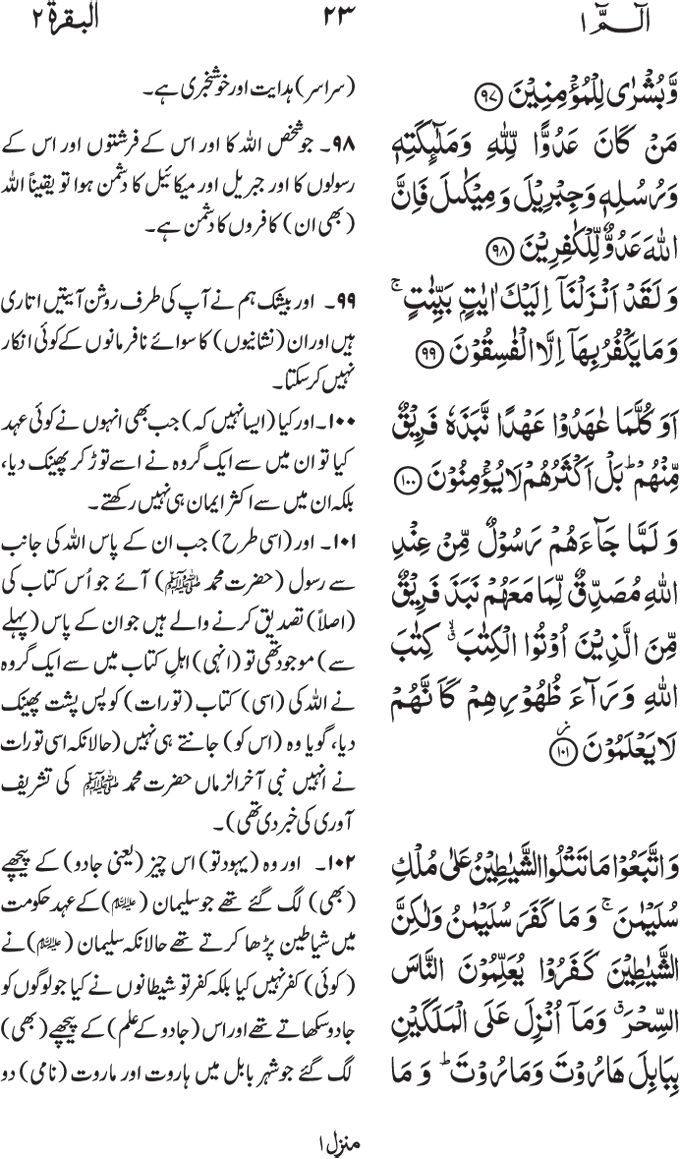 الٓمّٓ ۱
۲۳
البقرۃ ۲
وَّ بُشْرٰی لِلْمُؤْمِنِیْنَ ﴿۹۷﴾
مَنْ كَانَ عَدُوًّا لِّلّٰهِ وَمَلٰٓىِٕكَتِهٖ
وَرُسُلِهٖ وَجِبْرِیْلَ وَمِیْكٰىلَ فَاِنَّ
اللّٰهَ عَدُوٌّ لِّلْكٰفِرِیْنَ ﴿۹۸﴾
وَ لَقَدْ اَنْزَلْنَاۤ اِلَیْكَ اٰیٰتٍۭ بَیِّنٰتٍ ۚ
وَمَا یَكْفُرُ بِهَاۤ اِلَّا الْفٰسِقُوْنَ ﴿۹۹﴾
اَوَ كُلَّمَا عٰهَدُوْا عَهْدًا نَّبَذَهٗ فَرِیْقٌ
مِّنْهُمْ ؕ بَلْ اَكْثَرُهُمْ لَا یُؤْمِنُوْنَ ﴿۱۰۰﴾
وَ لَمَّا جَآءَهُمْ رَسُوْلٌ مِّنْ عِنْدِ
اللّٰهِ مُصَدِّقٌ لِّمَا مَعَهُمْ نَبَذَ فَرِیْقٌ
مِّنَ الَّذِیْنَ اُوْتُوا الْكِتٰبَ ۙۗ كِتٰبَ
اللّٰهِ وَرَآءَ ظُهُوْرِهِمْ كَاَنَّهُمْ
لَا یَعْلَمُوْنَ ﴿۱۰۱﴾
وَ اتَّبَعُوْا مَا تَتْلُوا الشَّیٰطِیْنُ عَلٰی مُلْكِ
سُلَیْمٰنَ ۚ وَ مَا كَفَرَ سُلَیْمٰنُ وَ لٰكِنَّ
الشَّیٰطِیْنَ كَفَرُوْا یُعَلِّمُوْنَ النَّاسَ
السِّحْرَ ۗ وَمَاۤ اُنْزِلَ عَلَی الْمَلَكَیْنِ
بِبَابِلَ هَارُوْتَ وَمَارُوْتَ ؕ وَ مَا
(سراسر) ہدایت اور خوشخبری ہے۔
۹۸۔ جو شخص اللہ کا اور اس کے فرشتوں اور اس کے
رسولوں کا اور جبریل اور میکائیل کا دشمن ہوا تو یقیناً اللہ
(بھی ان) کافروں کا دشمن ہے۔
۹۹۔ اور بیشک ہم نے آپ کی طرف روشن آیتیں اتاری
ہیں اور ان (نشانیوں) کا سوائے نافرمانوں کے کوئی انکار
نہیں کر سکتا۔
۱۰۰۔ اور کیا (ایسا نہیں کہ) جب بھی انہوں نے کوئی عہد
کیا تو ان میں سے ایک گروہ نے اسے توڑ کر پھینک دیا،
بلکہ ان میں سے اکثر ایمان ہی نہیں رکھتے۔
۱۰۱۔ اور (اسی طرح) جب ان کے پاس اللہ کی جانب
سے رسول (حضرت محمد ﷺ) آئے جو اُس کتاب کی
(اصلاً) تصدیق کرنے والے ہیں جو ان کے پاس (پہلے
سے) موجود تھی تو (انہی) اہلِ کتاب میں سے ایک گروہ
نے اللہ کی (اسی) کتاب (تورات) کو پسِ پشت پھینک
دیا، گویا وہ (اس کو) جانتے ہی نہیں (حالانکہ اسی تورات
نے انہیں نبی آخر الزماں حضرت محمد ﷺ کی تشریف
آوری کی خبر دی تھی)۔
۱۰۲۔ اور وہ (یہود تو) اس چیز (یعنی جادو) کے پیچھے
(بھی) لگ گئے تھے جو سلیمان (علیہ السلام) کے عہدِ حکومت
میں شیاطین پڑھا کرتے تھے حالانکہ سلیمان (علیہ السلام) نے
(کوئی) کفر نہیں کیا بلکہ کفر تو شیطانوں نے کیا جو لوگوں کو
جادو سکھاتے تھے اور اس (جادو کے علم) کے پیچھے (بھی)
لگ گئے جو شہر بابل میں ہاروت اور ماروت (نامی) دو
منزل ۱